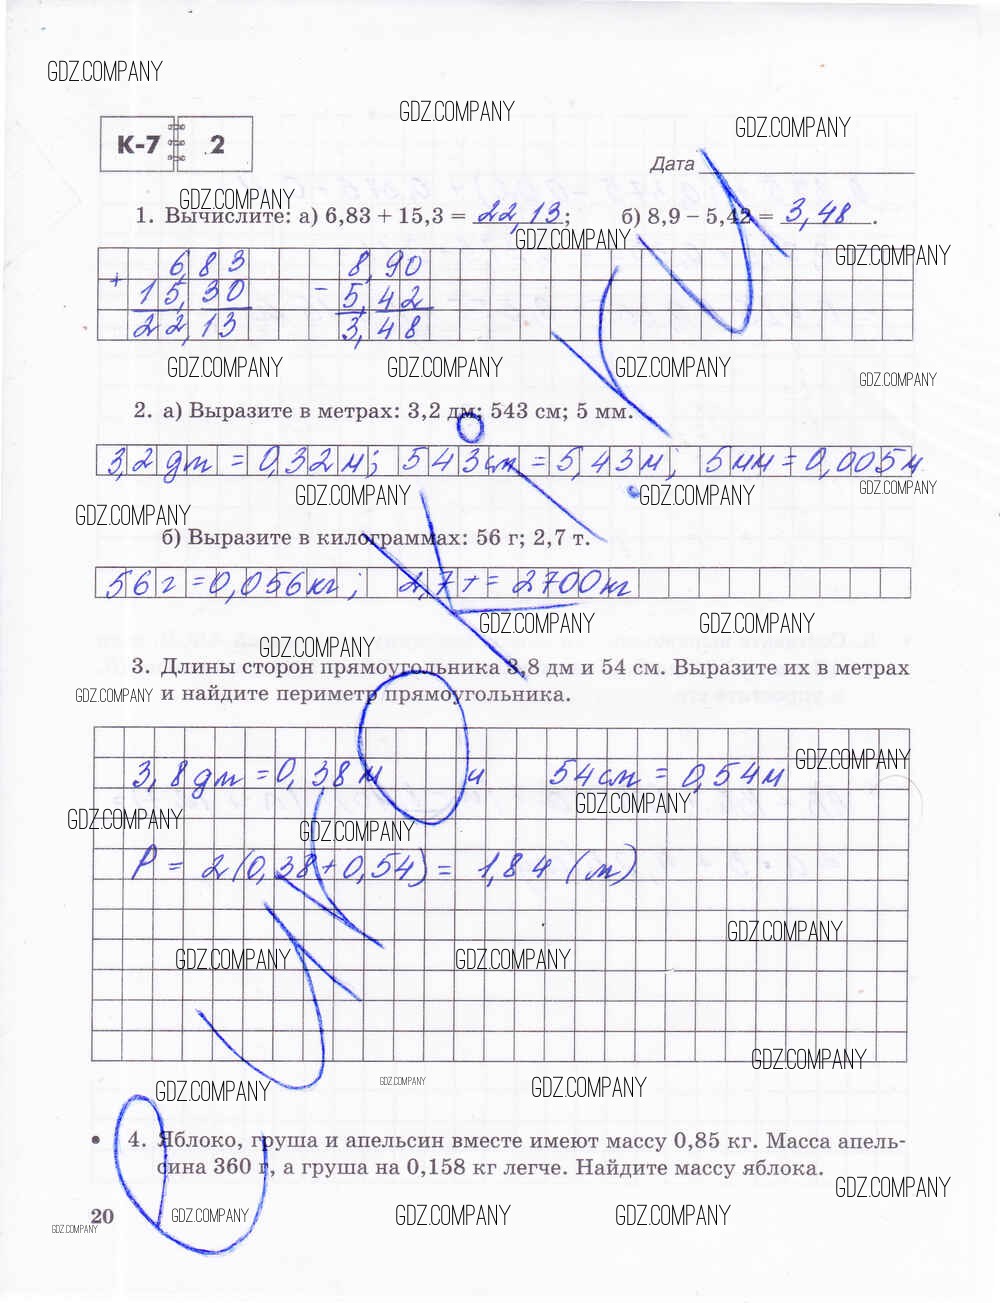 GDZ.COMPANY
GDZ.COMPANY
GDZ.COMPANY
К-7 2
Дата
GDZ.COMPANY
1. Вычислите: а) 6,83 + 15,3 = 22,13; б) 8,9 – 5,42 = 3,48.
GDZ.COMPANY GDZ.COMPANY
6,83 8,90
+ 15,30 – 5,42
22,13 3,48
GDZ.COMPANY GDZ.COMPANY GDZ.COMPANY GDZ.COMPANY
2. а) Выразите в метрах: 3,2 дм; 543 см; 5 мм.
3,2 дм = 0,32 м; 543 см = 5,43 м; 5 мм = 0,005 м
GDZ.COMPANY GDZ.COMPANY GDZ.COMPANY
GDZ.COMPANY
б) Выразите в килограммах: 56 г; 2,7 т.
56 г = 0,056 кг; 2,7 т = 2700 кг
GDZ.COMPANY GDZ.COMPANY
GDZ.COMPANY
3. Длины сторон прямоугольника 3,8 дм и 54 см. Выразите их в метрах
GDZ.COMPANY и найдите периметр прямоугольника.
GDZ.COMPANY
3,8 дм = 0,38 м и 54 см = 0,54 м
GDZ.COMPANY
GDZ.COMPANY GDZ.COMPANY
P = 2(0,38 + 0,54) = 1,84 (м)
GDZ.COMPANY
GDZ.COMPANY GDZ.COMPANY
GDZ.COMPANY
GDZ.COMPANY GDZ.COMPANY GDZ.COMPANY
• 4. Яблоко, груша и апельсин вместе имеют массу 0,85 кг. Масса апель-
сина 360 г, а груша на 0,158 кг легче. Найдите массу яблока.
GDZ.COMPANY
20 GDZ.COMPANY GDZ.COMPANY GDZ.COMPANY
GDZ.COMPANY